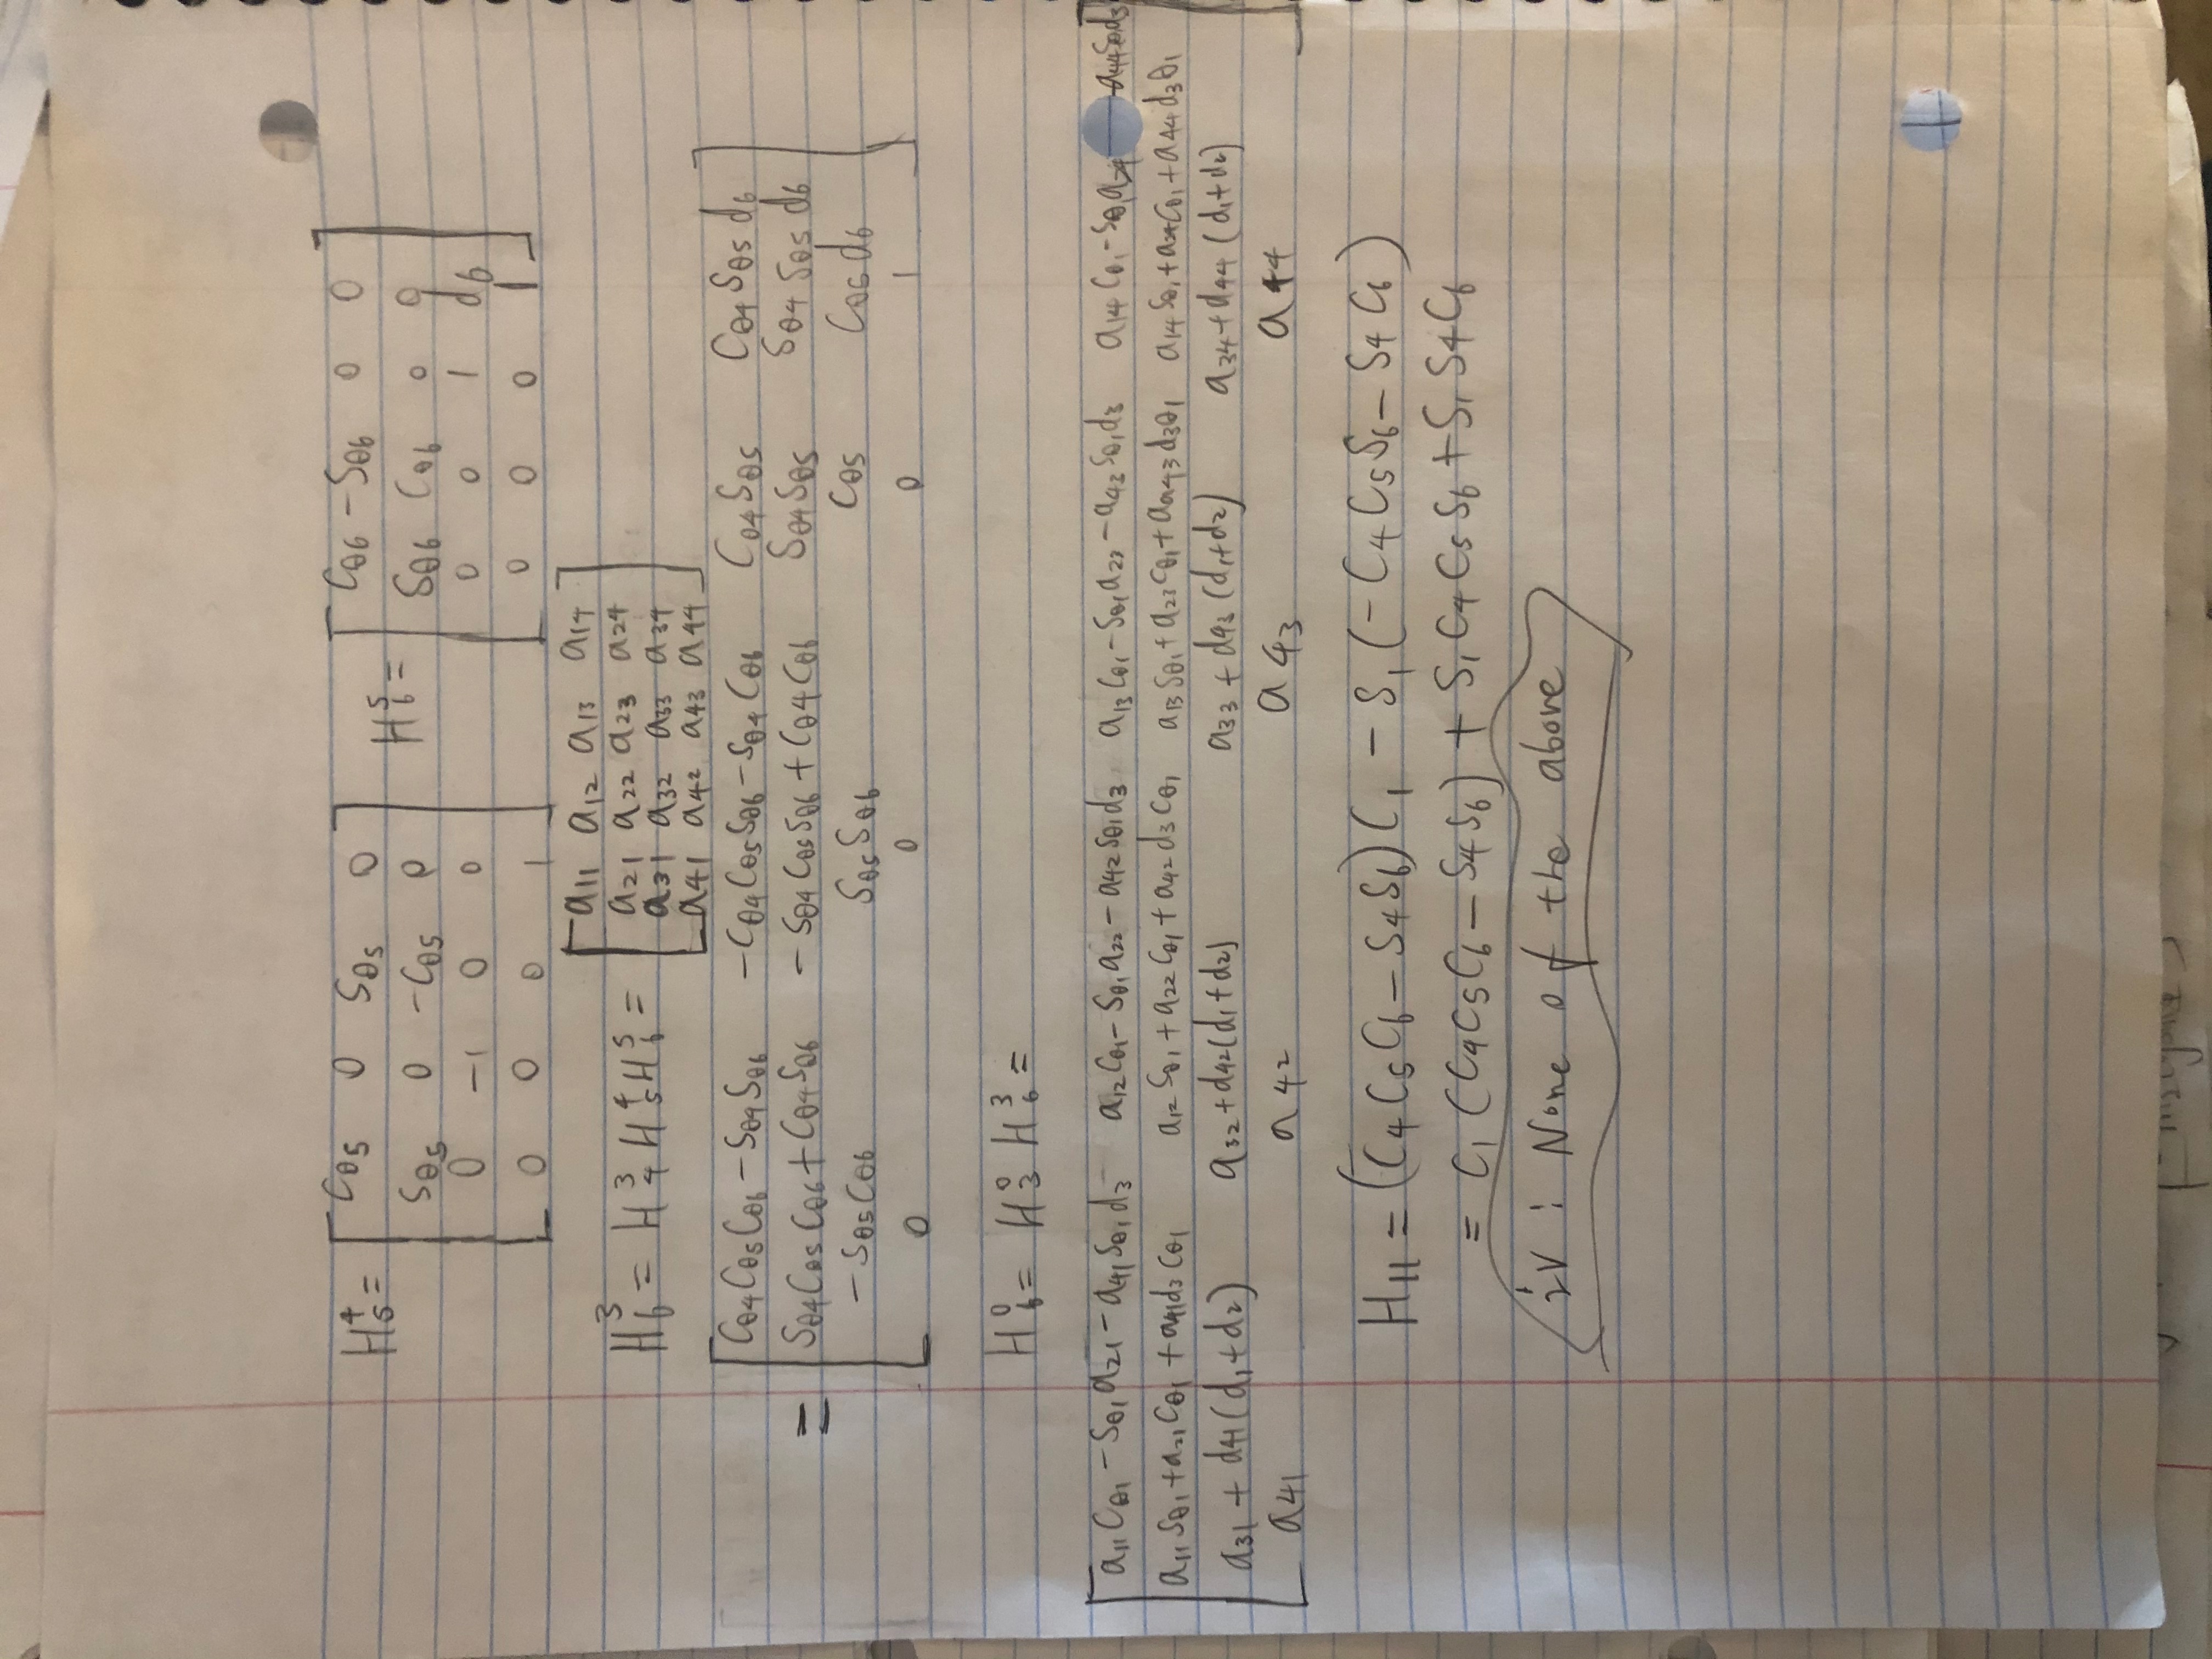 H⁴₅ = [ Cθ5 0 Sθ5 0 H⁵₆ = [ Cθ6 -Sθ6 0 0
Sθ5 0 -Cθ5 0 Sθ6 Cθ6 0 0
0 -1 0 0 0 0 1 d6
0 0 0 1 ] 0 0 0 1 ]
H³₆ = H³₄ H⁴₅ H⁵₆ = [ a11 a12 a13 a14
a21 a22 a23 a24
a31 a32 a33 a34
a41 a42 a43 a44 ]
= [ Cθ4Cθ5Cθ6 - Sθ4Sθ6 -Cθ4Cθ5Sθ6 - Sθ4Cθ6 Cθ4Sθ5 Cθ4Sθ5d6
Sθ4Cθ5Cθ6 + Cθ4Sθ6 -Sθ4Cθ5Sθ6 + Cθ4Cθ6 Sθ4Sθ5 Sθ4Sθ5d6
-Sθ5Cθ6 Sθ5Sθ6 Cθ5 Cθ5d6
0 0 0 1 ]
H⁰₆ = H⁰₃ H³₆ =
[ a11Cθ1 - Sθ1a21 - a41Sθ1d3 a12Cθ1 - Sθ1a22 - a42Sθ1d3 a13Cθ1 - Sθ1a23 - a43Sθ1d3 a14Cθ1 - Sθ1a24 - a44Sθ1d3
a11Sθ1 + a21Cθ1 + a41d3Cθ1 a12Sθ1 + a22Cθ1 + a42d3Cθ1 a13Sθ1 + a23Cθ1 + aa43d3θ1 a14Sθ1 + a24Cθ1 + a44d3θ1
a31 + d41(d1+d2) a32 + d42(d1+d2) a33 + d43(d1+d2) a34 + d44(d1+d2)
a41 a42 a43 a44 ]
H11 = (C4C5C6 - S4S6)C1 - S1(-C4C5S6 - S4C6)
= C1(C4C5C6 - S4S6) + S1C4C5S6 + S1S4C6
iv : None of the above